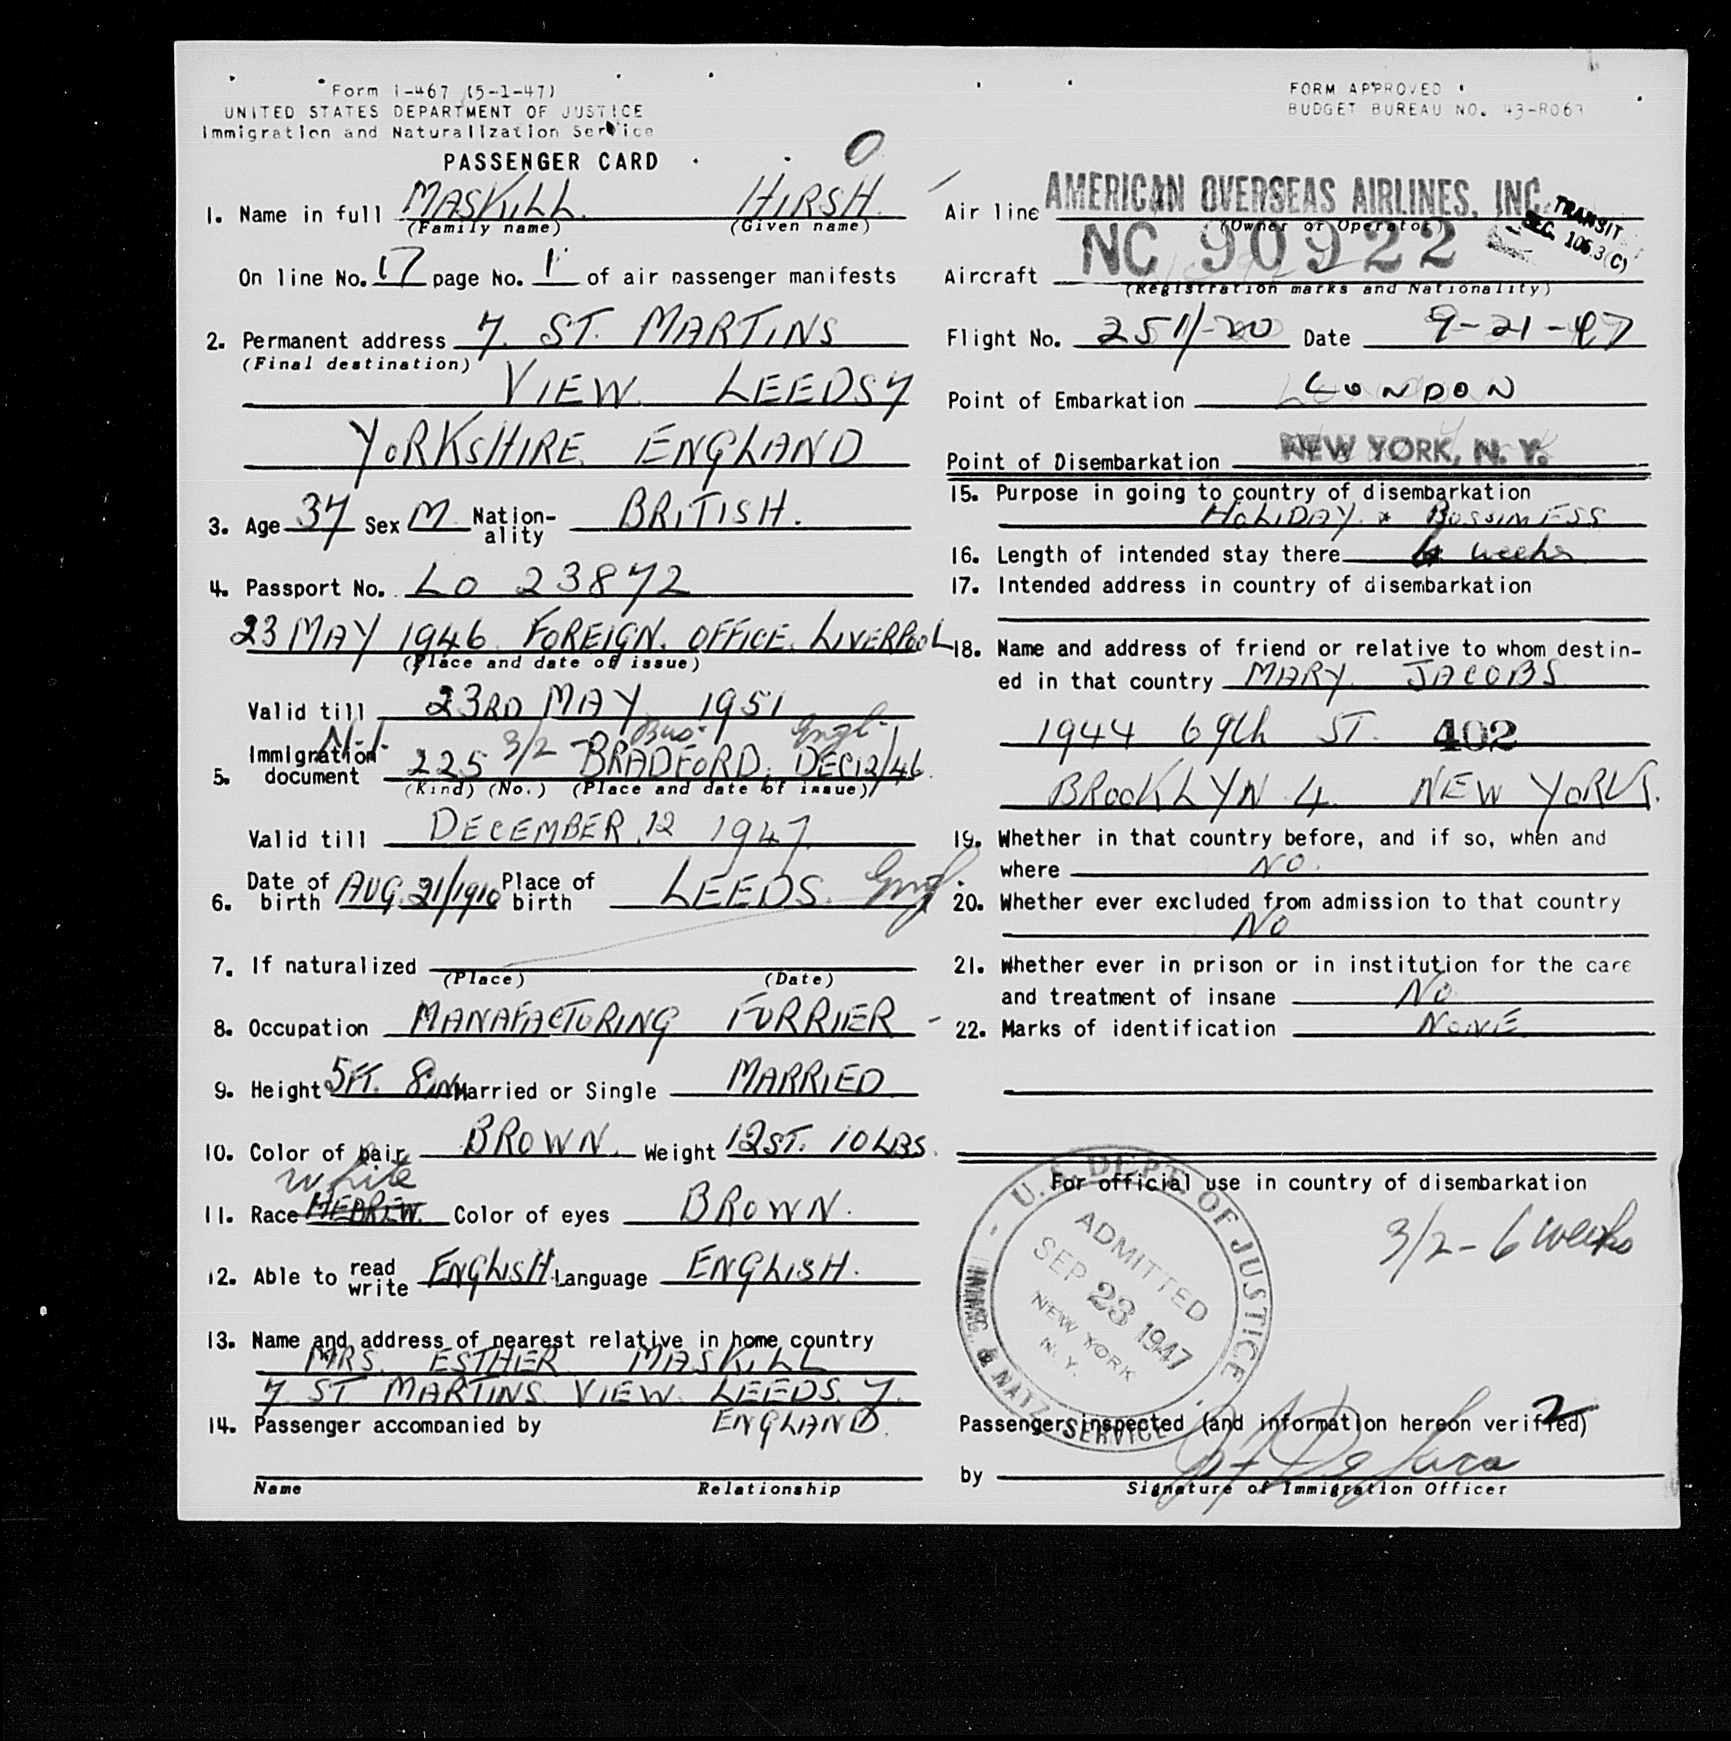 Form I-467 (5-1-47)
UNITED STATES DEPARTMENT OF JUSTICE
Immigration and Naturalization Service
PASSENGER CARD
0
1. Name in full MASKILL. HIRSH.
(Family name) (Given name)
On line No. 17 page No. 1 of air passenger manifests
2. Permanent address 7. ST. MARTINS
(Final destination)
VIEW. LEEDS 7
YORKSHIRE. ENGLAND
3. Age 37 Sex M. Nation-ality BRITISH.
4. Passport No. LO 23872
23 MAY 1946 FOREIGN. OFFICE. LIVERPOOL
(Place and date of issue)
Valid till 23RD MAY 1951
N-I. 3/2 Bus. Engl.
5. Immigration document 225 BRADFORD. DEC 12/46.
(Kind) (No.) (Place and date of issue)
Valid till DECEMBER 12 1947.
6. Date of birth AUG. 21/1910 Place of birth LEEDS. Engl.
7. If naturalized
(Place) (Date)
8. Occupation MANAFACTURING FURRIER -
9. Height 5FT. 8IN Married or Single MARRIED
10. Color of hair BROWN. Weight 12ST. 10LBS.
white
11. Race HEBREW. Color of eyes BROWN.
12. Able to read write ENGLISH. Language ENGLISH.
13. Name and address of nearest relative in home country
MRS. ESTHER MASKILL
7. ST MARTINS VIEW. LEEDS. 7.
14. Passenger accompanied by ENGLAND.
Name Relationship
FORM APPROVED
BUDGET BUREAU NO. 43-R063
Air line AMERICAN OVERSEAS AIRLINES, INC.
(Owner or Operator)
TRANSIT
SEC. 106.3(C)
Aircraft NC 90922
(Registration marks and Nationality)
Flight No. 251/-20 Date 9-21-47
Point of Embarkation LONDON
Point of Disembarkation NEW YORK, N. Y.
15. Purpose in going to country of disembarkation
HOLIDAY. * BUSSINESS
16. Length of intended stay there 4 weeks
17. Intended address in country of disembarkation
18. Name and address of friend or relative to whom destin-
ed in that country MARY. JACOBS
1944 69th ST. 402
BROOKLYN 4. NEW YORK.
19. Whether in that country before, and if so, when and
where NO.
20. Whether ever excluded from admission to that country
NO
21. Whether ever in prison or in institution for the care
and treatment of insane NO
22. Marks of identification NONE.
For official use in country of disembarkation
3/2 - 6 weeks
U. S. DEPT. OF JUSTICE
IMMIG. & NATZ. SERVICE
ADMITTED
SEP 23 1947
NEW YORK
N. Y.
2
Passengers inspected (and information hereon verified)
by
Signature of Immigration Officer